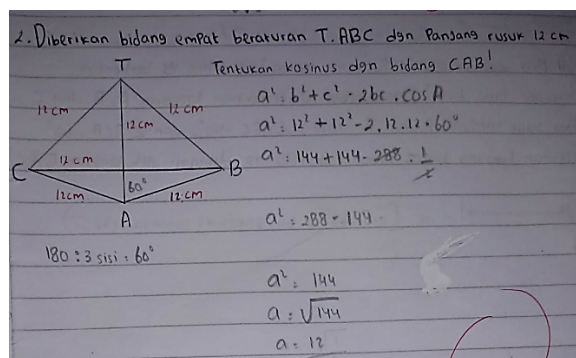 2. Diberikan bidang empat beraturan T.ABC dgn Panjang rusuk 12 cm
Tentukan kosinus dgn bidang CAB!
T
12 cm
12 cm
12 cm
12 cm
C
B
60°
12cm
12 cm
A
180 : 3 sisi = 60°
a² = b² + c² - 2bc . cos A
a² = 12² + 12² - 2.12.12 . 60°
a² = 144 + 144 - 288 . 1/2
a² = 288 - 144
a² = 144
a = √144
a = 12